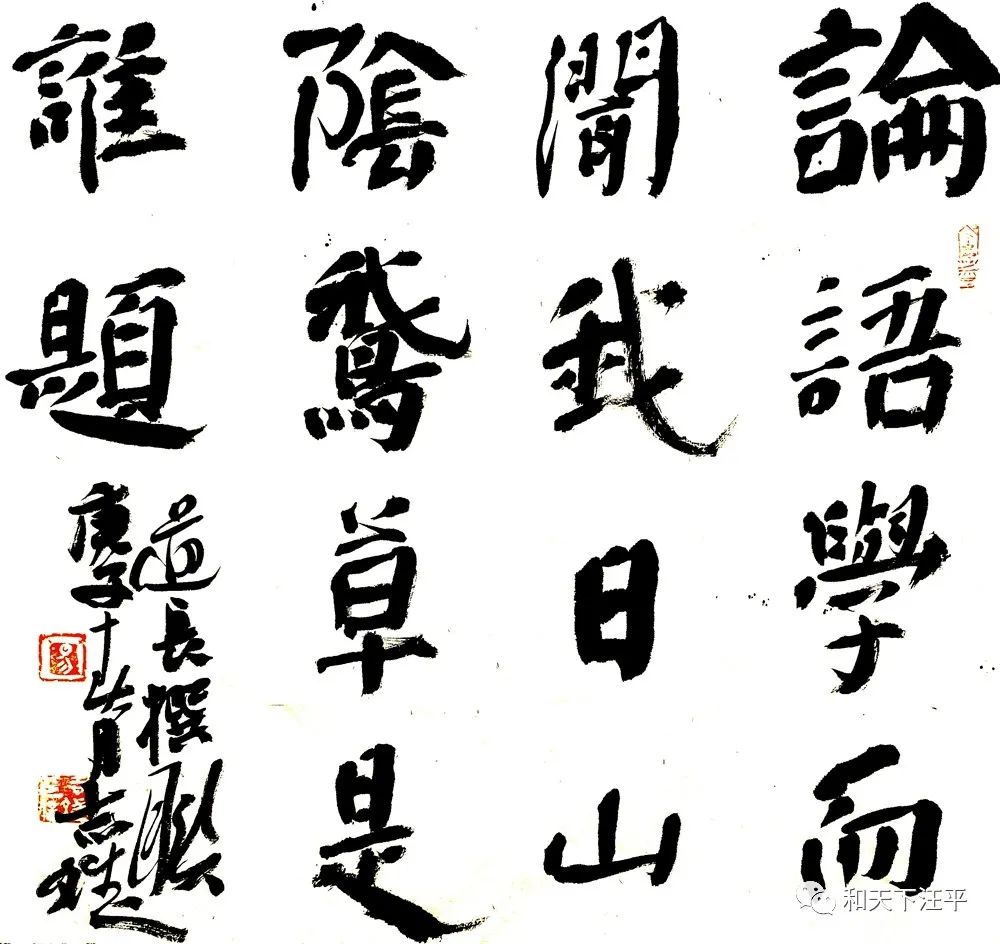 論語學而
我日山
陰鵞草是
誰題
道長撰聯
庚子十月
和天下汪平